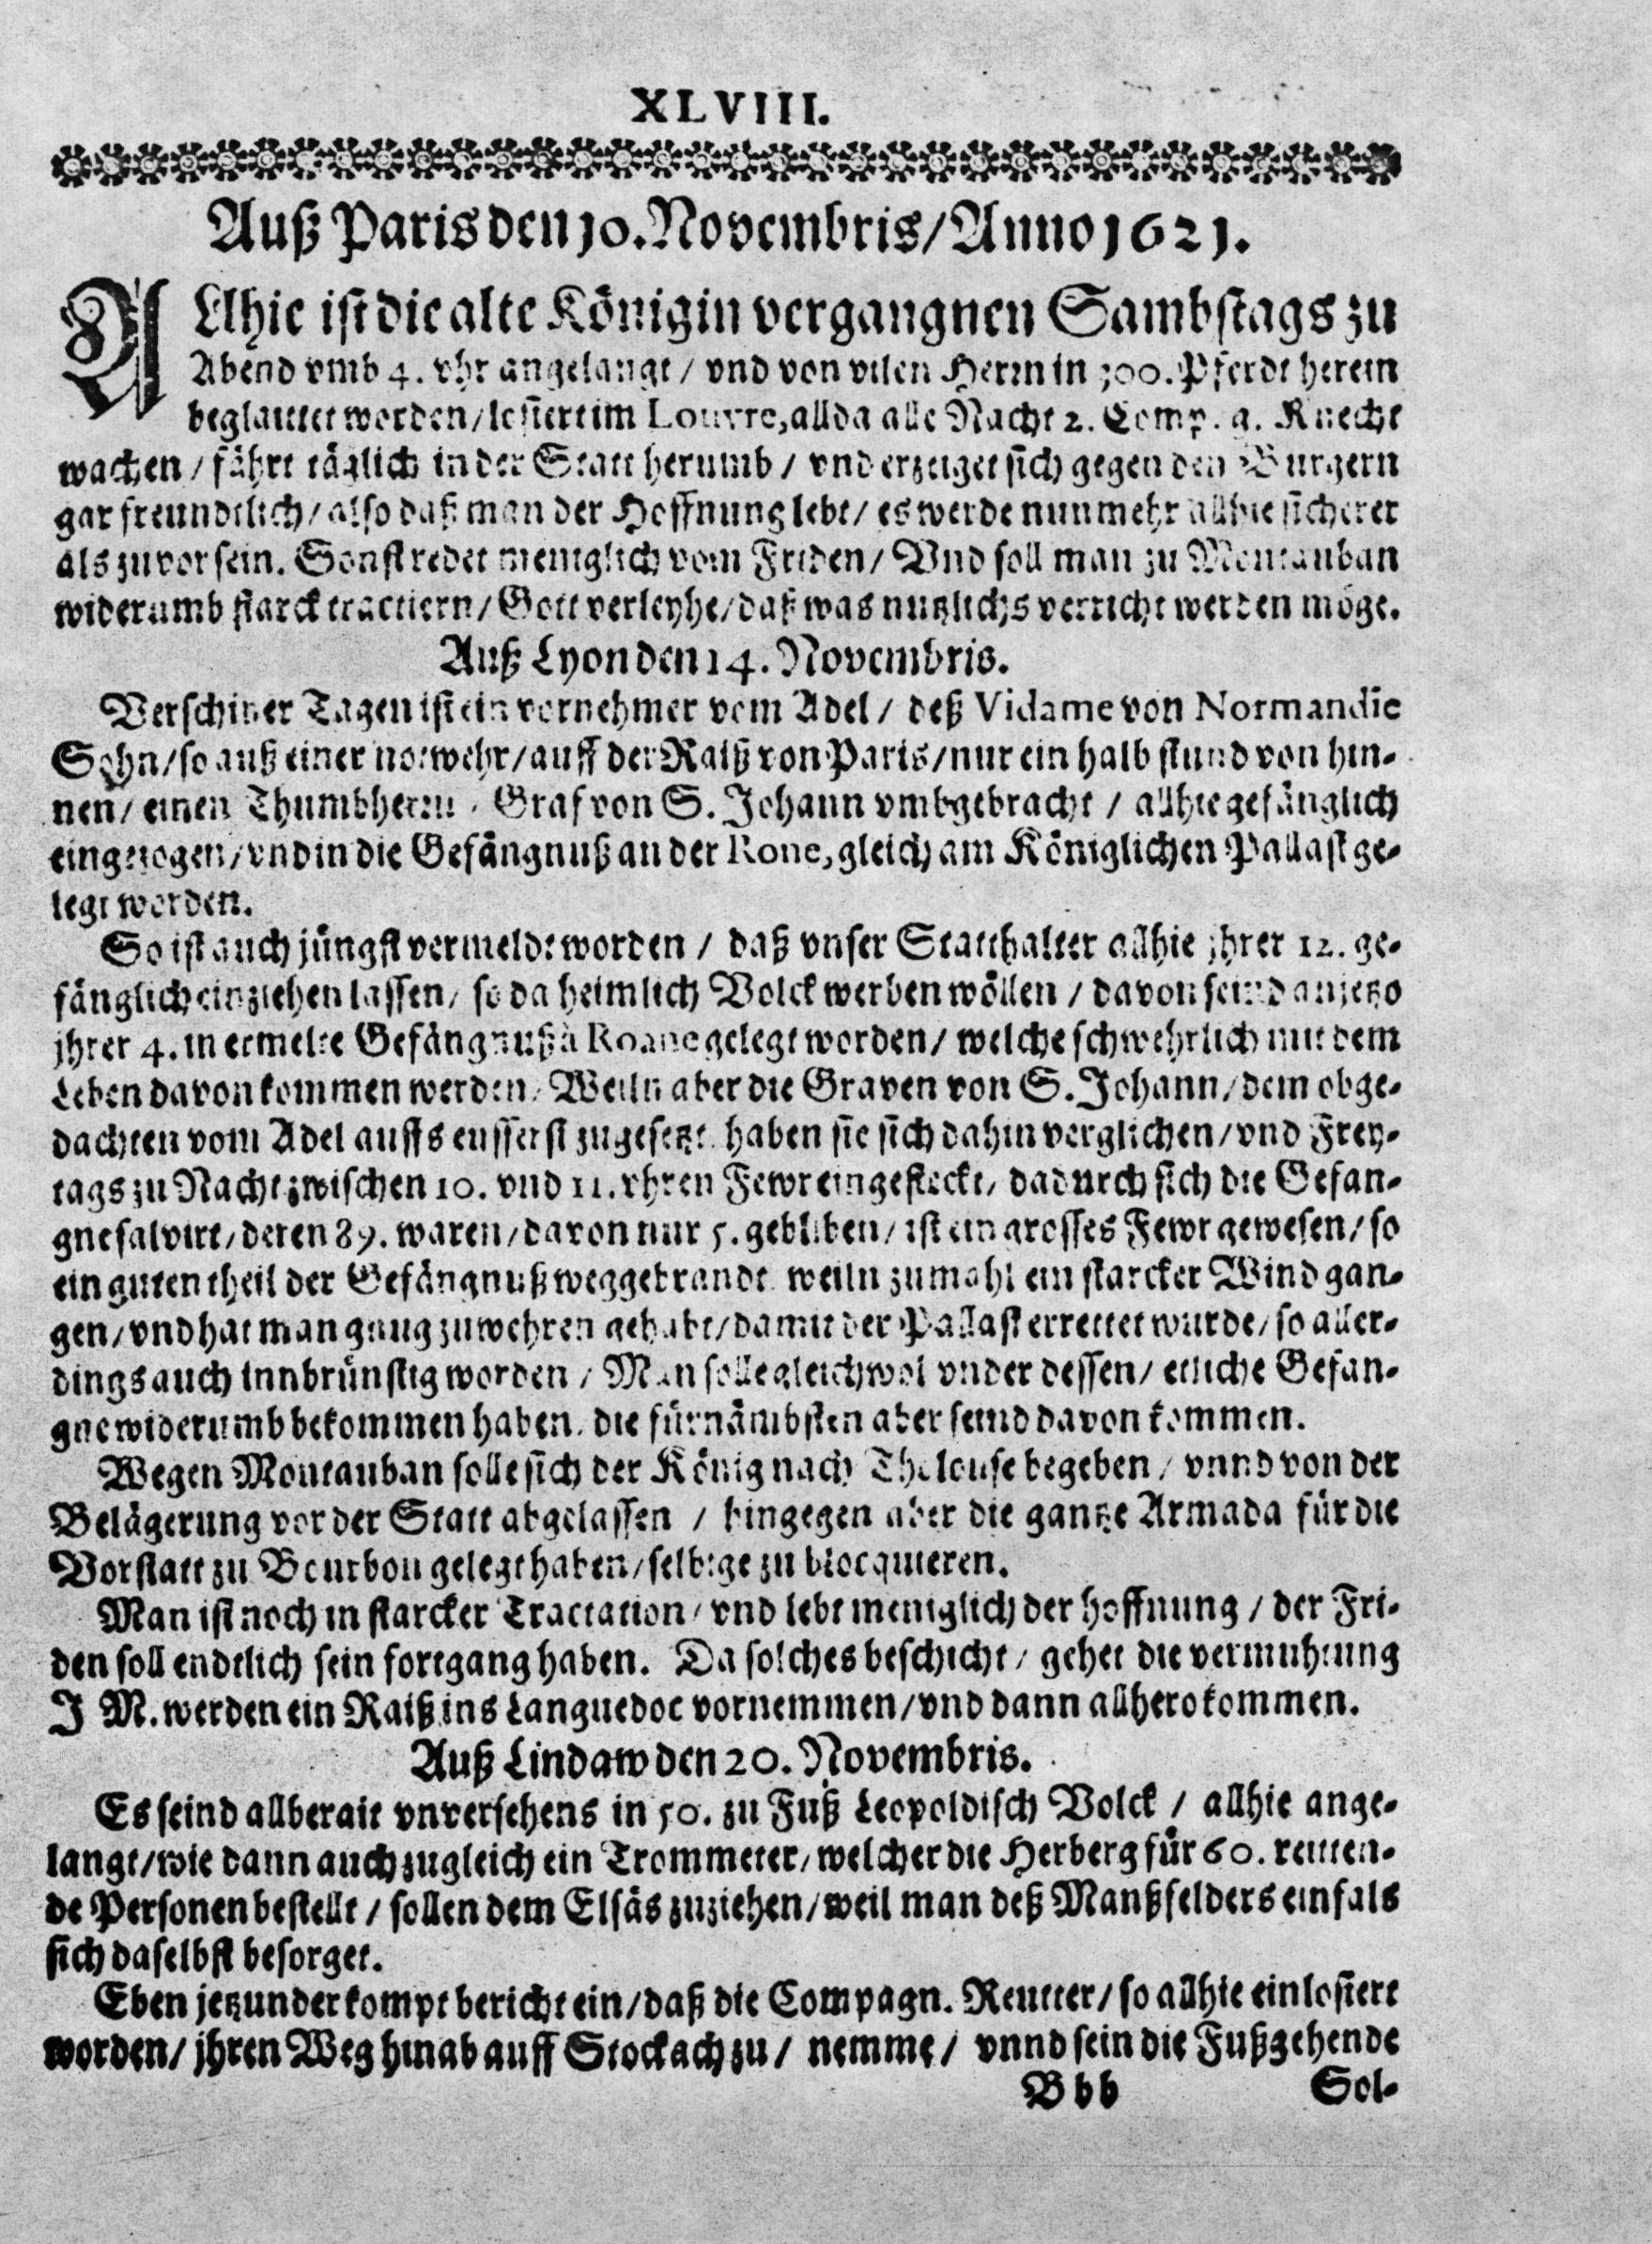 XLVIII.
Auß Paris den 10. Novembris/ Anno 1621.
ALlhie ist die alte Königin vergangnen Sambstags zu
Abend vmb 4. vhr angelangt / vnd von vilen Herrn in 300. Pferdt herein
beglaittet worden/ losiert im Louvre, allda alle Nacht 2. Comp. g. Knecht
wachen / fährt täglich in der Statt herumb / vnd erzeiget sich gegen den Burgern
gar freundtlich/ also daß man der Hoffnung lebt/ es werde nunmehr allhie sicherer
als zuvor sein. Sonst redet meniglich vom Friden/ Vnd soll man zu Montauban
widerumb starck tractiern/ Gott verleyhe/ daß was nutzlichs verricht werden möge.
Auß Lyon den 14. Novembris.
Verschiner Tagen ist ein vornehmer vom Adel / deß Vidame von Normandie
Sohn/ so auß einer notwehr/ auff der Raiß von Paris/ nur ein halb stund von hin-
nen/ einen Thumbherrn / Graf von S. Johann vmbgebracht / allhie gefänglich
eingezogen/ vnd in die Gefängnuß an der Rone, gleich am Königlichen Pallast ge-
legt worden.
So ist auch jüngst vermeldt worden / daß vnser Statthalter allhie jhrer 12. ge-
fänglich einziehen lassen/ so da heimlich Volck werben wöllen / davon seind anjetzo
jhrer 4. in ermelte Gefängnuß à Roane gelegt worden/ welche schwehrlich mit dem
Leben davon kommen werden/ Weiln aber die Graven von S. Johann/ dem obge-
dachten vom Adel auffs eusserst zugesetzt haben sie sich dahin verglichen/ vnd Frey-
tags zu Nacht zwischen 10. vnd 11. vhren Fewr eingesteckt/ dadurch sich die Gefan-
gne salvirt/ deren 89. waren/ davon nur 5. gebliben/ ist ein grosses Fewr gewesen/ so
ein guten theil der Gefängnuß weggebrandt weiln zumahl ein starcker Wind gan-
gen/ vnd hat man gnug zuwehren gehabt/ damit der Pallast errettet wurde/ so aller-
dings auch innbrünstig worden / Man solle gleichwol vnder dessen/ etliche Gefan-
gne widerumb bekommen haben. die fürnämbsten aber seind davon kommen.
Wegen Montauban solle sich der König nach Tholouse begeben / vnnd von der
Belägerung vor der Statt abgelassen / hingegen aber die gantze Armada für die
Vorstatt zu Bourbon gelegt haben/ selbige zu blocquieren.
Man ist noch in starcker Tractation/ vnd lebt meniglich der hoffnung / der Fri-
den soll endtlich sein fortgang haben. Da solches beschicht / gehet die vermuhtung
J M. werden ein Raiß ins Languedoc vornemmen/ vnd dann allhero kommen.
Auß Lindaw den 20. Novembris.
Es seind allberait vnversehens in 50. zu Fuß Leopoldisch Volck / allhie ange-
langt/ wie dann auch zugleich ein Trommeter/ welcher die Herberg für 60. reitten-
de Personen bestellt / sollen dem Elsäs zuziehen/ weil man deß Manßfelders einfals
sich daselbst besorget.
Eben jetzunder kompt bericht ein/ daß die Compagn. Reutter/ so allhie einlosiert
worden/ jhren Weg hinab auff Stockach zu / nemme / vnnd sein die Fußgehende
Bbb Sol-